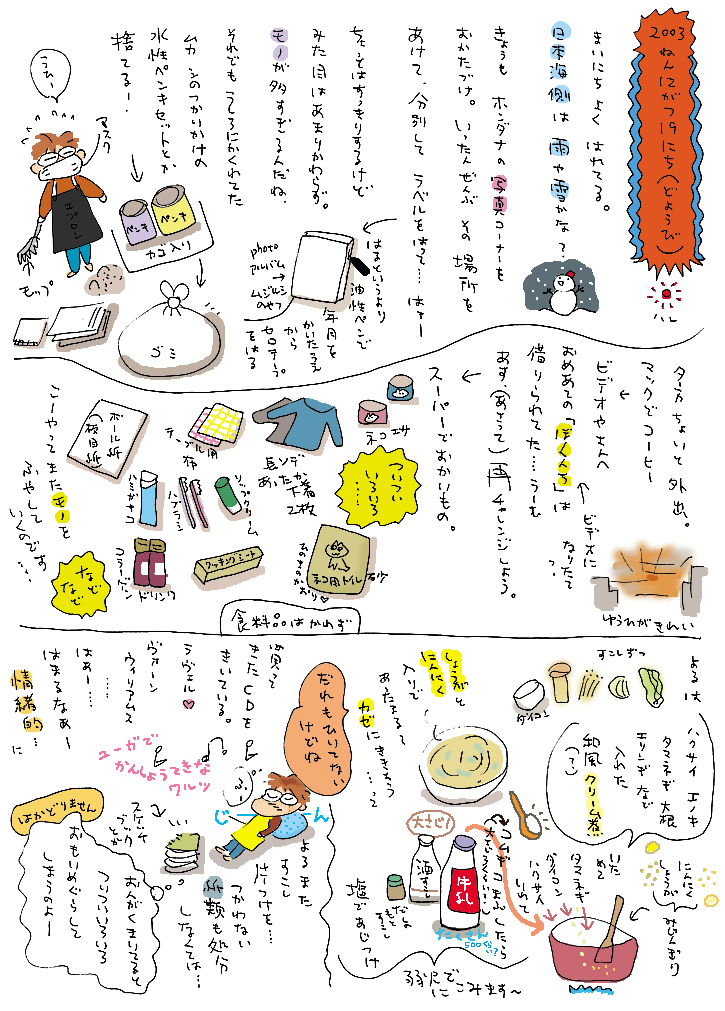 2003ねんにがつ19にち(どようび)
ハレ
まいにちよくはれてる。
日本海側は雨や雪かな?
きょうもホンダナの写真コーナーを
おかたづけ。いったんぜんぶその場所を
あけて、分別してラベルをはって…はぁー
ちょっとはすっきりするけど
みため目はあまりかわらず。
モノが多すぎるんだね、
それでもうしろにかくれてた
ムカシのつかいかけの
水性ペンキセットとか
捨てるー!
うひー
マスク
エプロン
モップ
ペンキ
ペンキ
カゴ入り
ゴミ
はるというより
油性ペンで
年月を
かいたうえ
から
セロテープ
をはる
photo
アルバム
ムジルシ
のやつ
夕方ちょいと外出。
マックでコーヒー
ビデオやさんへ
おめあての「ぼくんち」は
借りられてた…うーむ
あす、(あさって)再チャレンジしよう。
ビデオに
なりたて
?
ゆうひがきれい
スーパーでおかいもの。
ネコエサ
長ソデ
あったか下着
2枚
テーブル用
布
ボール紙
(板目紙)
ついつい
いろいろ
…
リップクリーム
ハブラシ
ハミガキコ
ネコ用トイレ砂
きのものかおり
クッキングシート
コラーゲン
ドリンク
こーやってまたモノを
ふやして
いくのです…
などなど
食料品はかわず
よるは
すこしずつ
ダイコン
ハクサイ エノキ
タマネギ 大根
エリンギなど
入れた
和風クリーム煮
(?)
にんにく
しょうが
みじんぎり
いた
めて
タマネギ
ダイコン
ハクサイ
いれて
コムギコまぶしたら
大さじ1
大さじ2くらい
酒すこし
牛にゅう
たくさん
500cc ?
だし
もと
すこし
塩であじつけ
弱火で
にこみます〜
しょうがと
にんにく
入りで
あったまる〜
カゼにききそう
…って
だれもひいてない
けどね
買って
きたCDを
きいている。
ラヴェル
ヴォーン
ウィリアムス
はぁー……
はまるなぁー
情緒的…に
ユーガで
かんしょうてきな
ワルツ
ふー
じーん
よるまた
すこし
片づけを…
つかわない
紙類も処分
しなくては…
スケッチ
ブック
とか
はかどりません
おんがくきいてると
ついついいろいろ
おもいめぐらして
しまうのよー